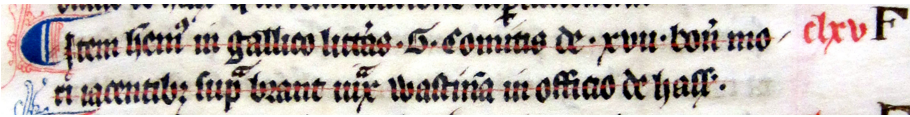 Item hem9 in gallico litt'as · G · Comitis de · xvii · bon' mo clxv F
ri iacentib3 sup brant iux wastina in officio de hass' ·